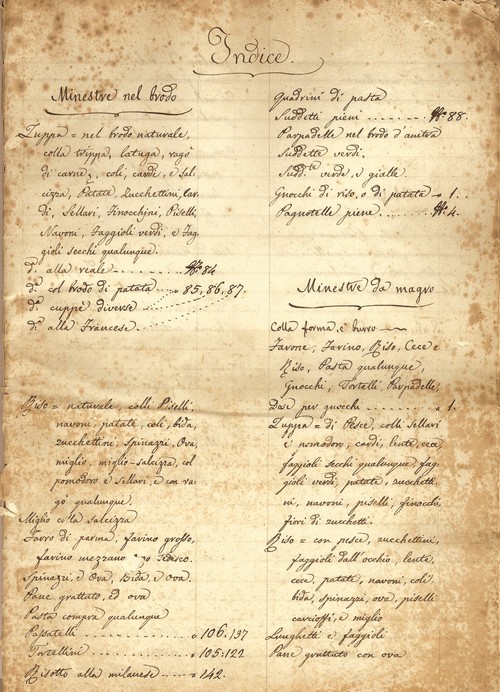 Indice.
Minestre nel brodo
Zuppa = nel brodo naturale,
colla trippa, latuga, ragò
di carne, coli, cardi, e sel-
cizza, Patate, Zucchettini, Car-
di, Sellari, Finocchini, Piselli,
Navoni, Faggioli verdi, e Fag-
gioli secchi qualunque.
d.ª alla reale - - - - - - - № 84
d.ª col brodo di patata - - - - 85, 86, 87.
d.ª cuppè diverse
d.ª alla Francese
Riso = naturale, colli Piselli,
navoni, patate, coli, bida,
zucchettini, spinazzi, ova,
miglio, miglio-salcizza, col
pomodoro e sellari, e con ra-
gò qualunque.
Miglio colla salcizza
Farro di parma, farino grosso,
farino mezzano Tedesco.
Spinazzi, e Ova, Bida, e Ova.
Pane grattato, ed ova
Pasta compra qualunque
Passatelli - - - - - - - - - - " 106. 137
Tortellini - - - - - - - - - - " 105. 122
Risotto alla milanese - - - - - " 142.
Quadrini di pasta
Suddetti pieni - - - - - - - № 88.
Parpadelle nel brodo d'anitra
Suddette verdi,
Sudd.te verdi, e gialle
Gnocchi di riso, o di patate " 1.
Pagnotelle piene - - - - - - № 4.
Minestre da magro
Colla forma, e burro
Farone, Farino, Riso, Cece e
Riso, Pasta qualunque,
Gnocchi, Tortelli, Parpadelle,
Dose per gnocchi - - - - - - - - " 1.
Zuppa = di Pesce, colli Sellari
e pomodoro, cardi, lente, cece,
faggioli secchi qualunque, fag-
gioli verdi, patate, zucchetti-
ni, navoni, piselli, finocchi,
fiori di zucchetti.
Riso = con pesce, zucchettini,
faggioli dall'occhio, lente,
cece, patate, navoni, coli
bida, spinazzi, ova, piselli
carcioffi, e miglio
Lunghetti e faggioli
Pane grattato con ova